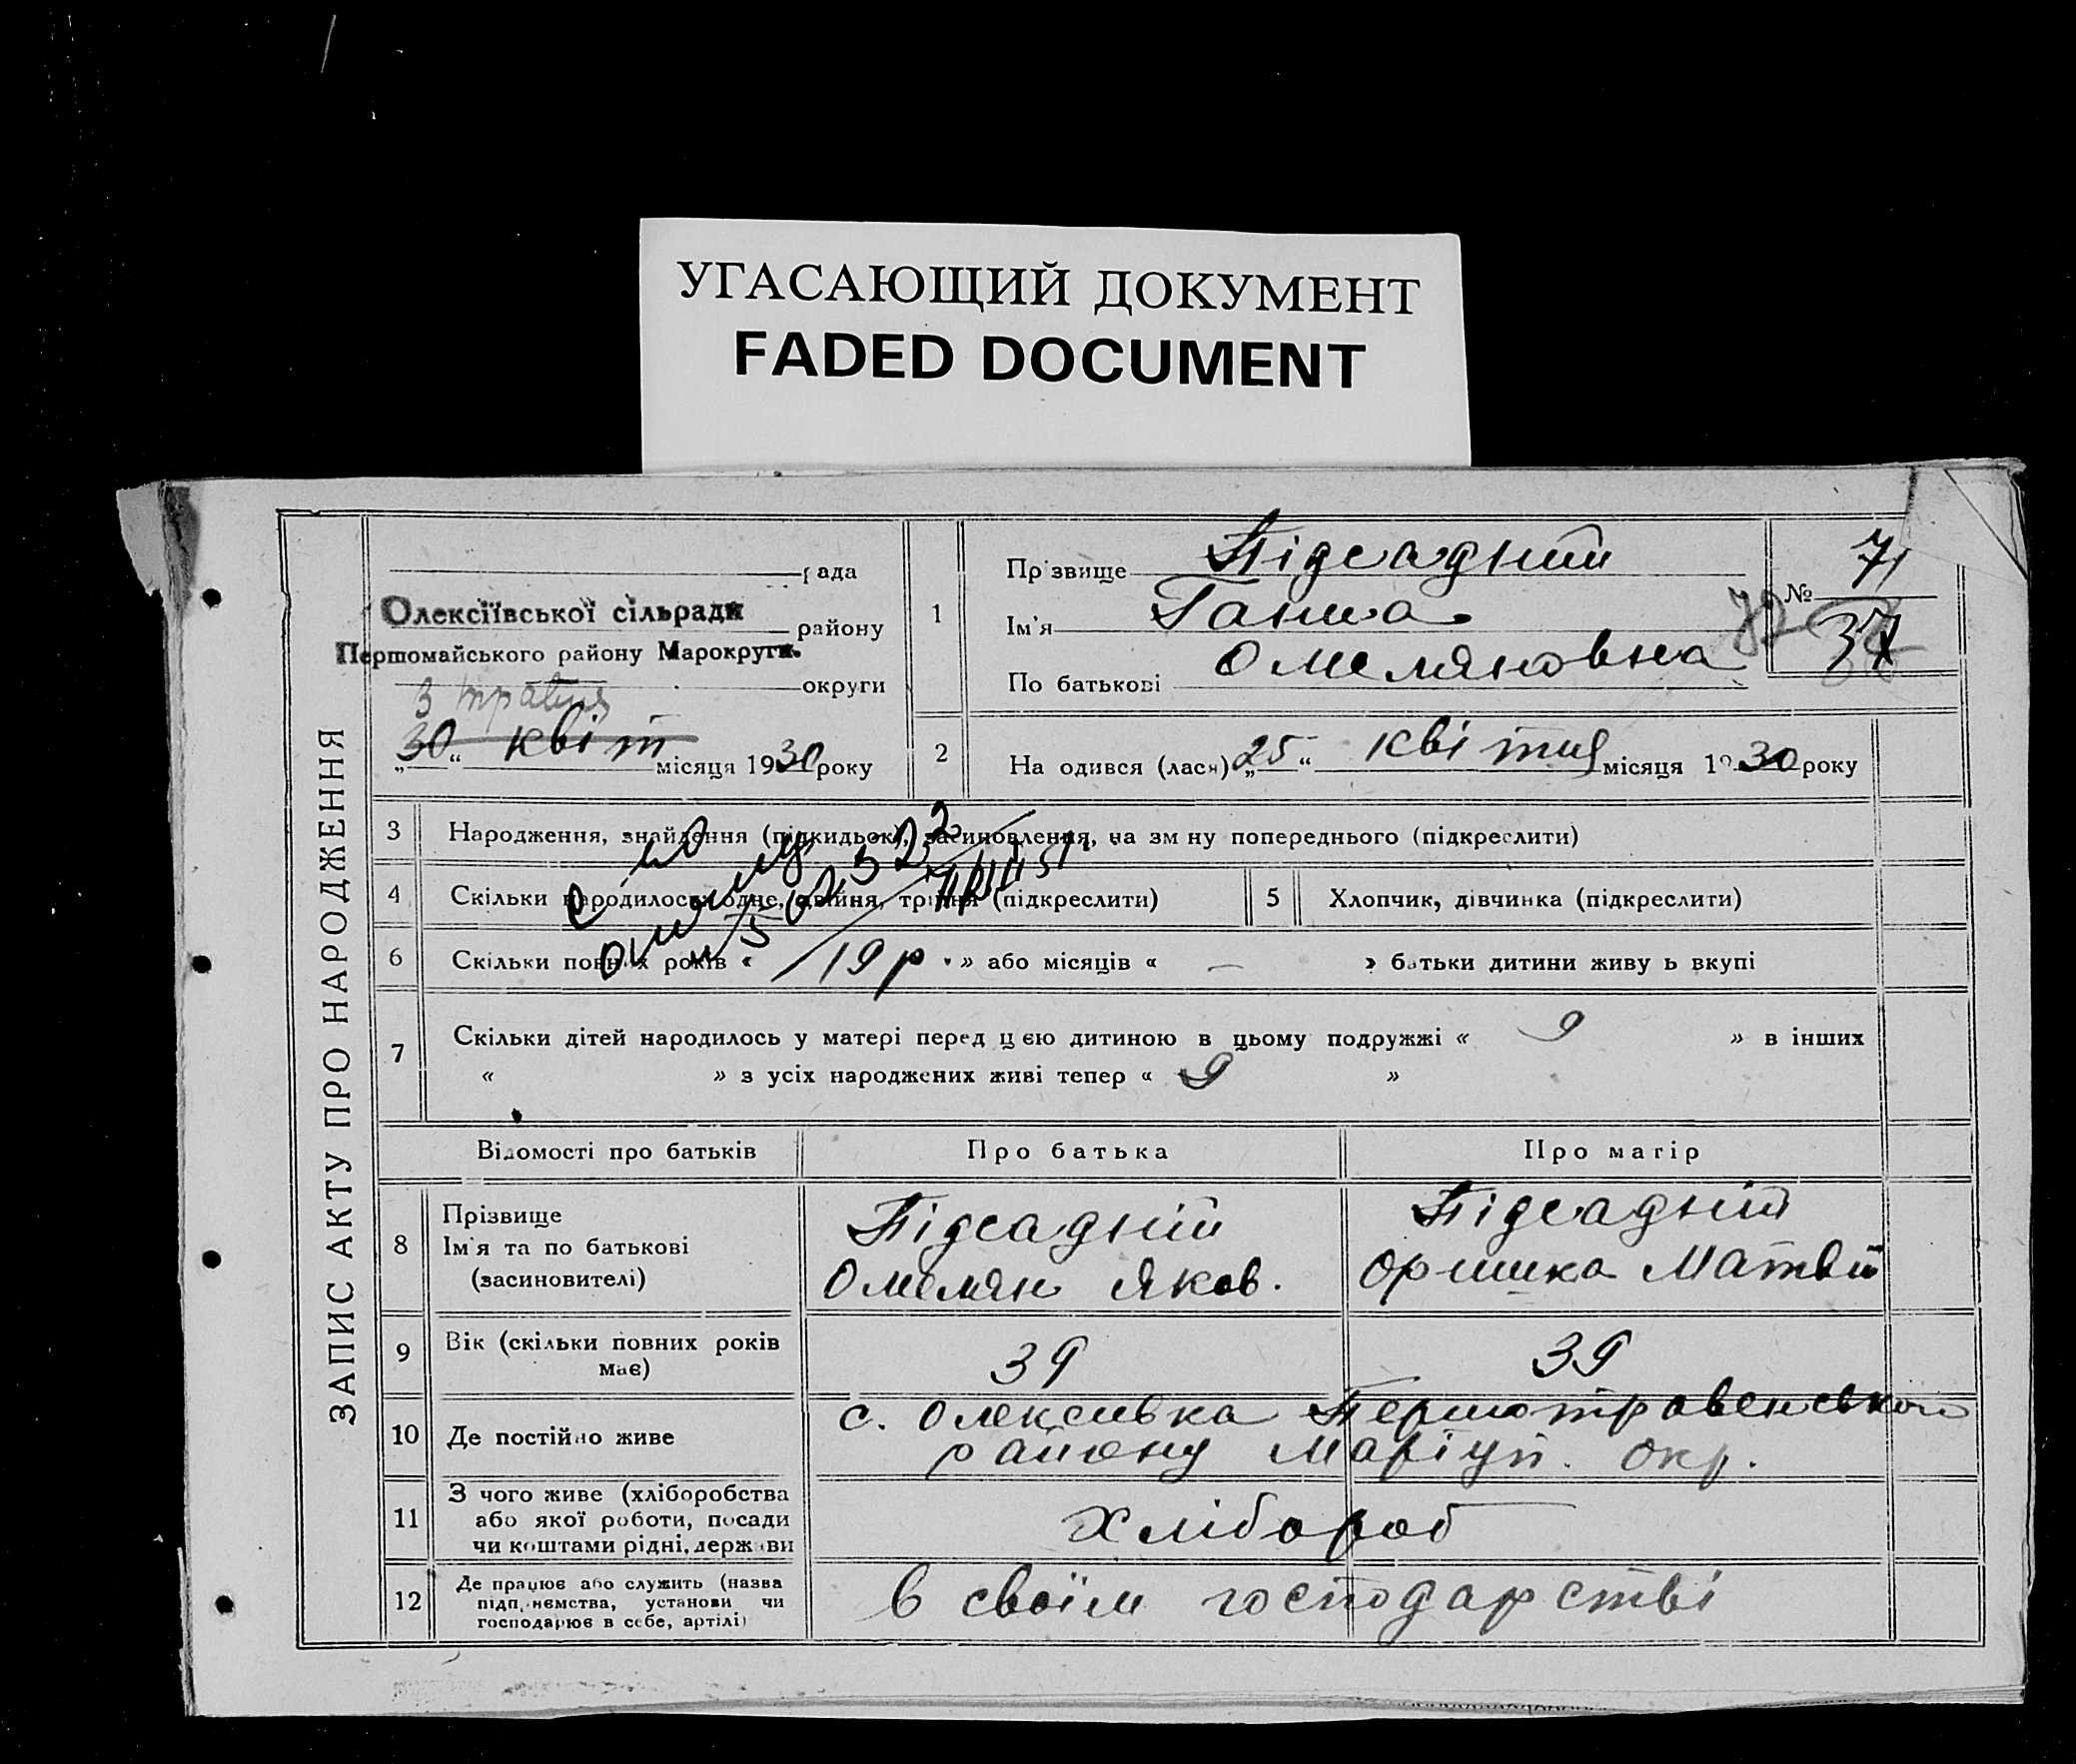 УГАСАЮЩИЙ ДОКУМЕНТ
FADED DOCUMENT
ЗАПИС АКТУ ПРО НАРОДЖЕННЯ
рада
Олексіївської сільради
району
Першомайського району Марокруги.
округи
3 травня
„30“ квіт місяця 1930 року
1
Прізвище Підсадний
Ім'я Ганна
По батькові Омеляновна
№ 71
37
72
2
На одився (лася) „25“ квітня місяця 1930 року
3 Народження, знайдення (підкидьок), засиновлення, на зм ну попереднього (підкреслити)
4 Скільки народилось: одне, двійня, трійня (підкреслити)
5 Хлопчик, дівчинка (підкреслити)
6 Скільки повних років « 19 р » або місяців « — » батьки дитини живу ь вкупі
7 Скільки дітей народилось у матері перед цією дитиною в цьому подружжі « 9 » в інших
« » з усіх народжених живі тепер « 9 »
Відомості про батьків
Про батька
Про матір
8 Прізвище
Ім'я та по батькові
(засиновителі)
Підсадній
Омелян Яков.
Підсадній
Оришка Матвій
9 Вік (скільки повних років
має)
39
39
10 Де постійно живе
с. Олексивка Першотравенської
району Маріуп. окр.
11 З чого живе (хліборобства
або якої роботи, посади
чи коштами рідні, держави
Хлібороб
12 Де працює або служить (назва
підприємства, установи чи
господарює в себе, артілі)
в своїм господарстві